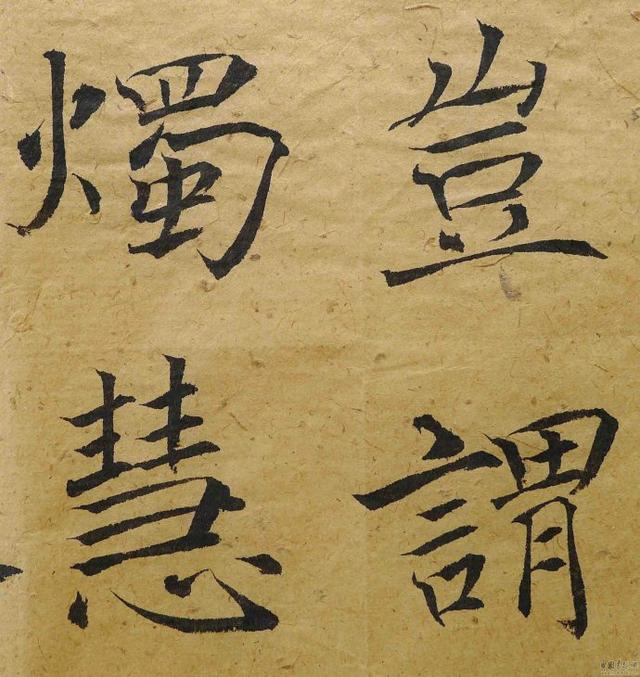 豈謂
燭慧